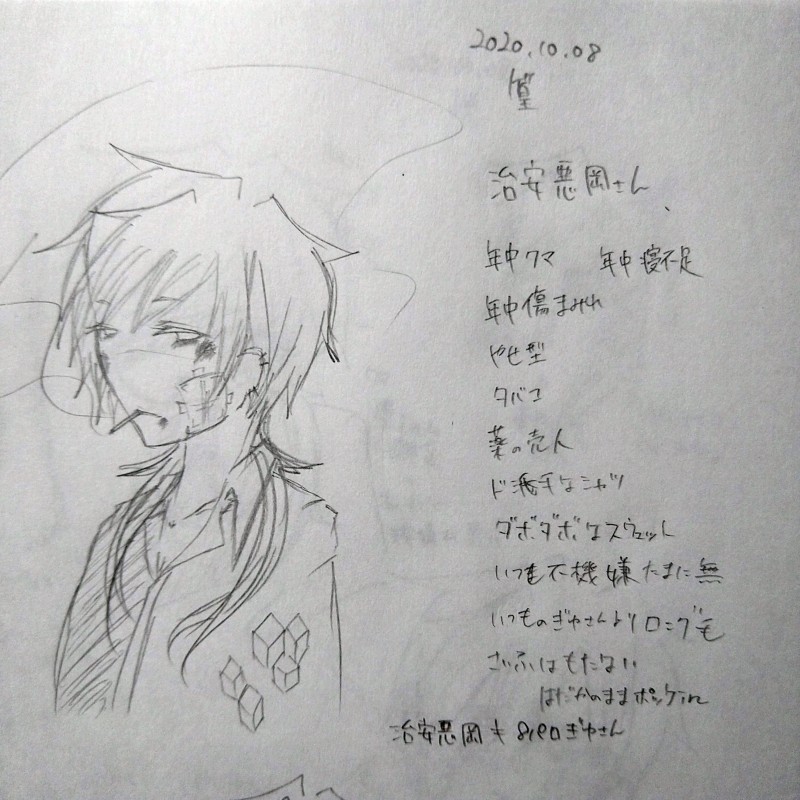 2020.10.08
篁
治安悪岡さん
年中クマ 年中寝不足
年中傷まみれ
やせ型
タバコ
薬の売人
ド派手なシャツ
ダボダボなスウェット
いつも不機嫌たまに無
いつものぎゆさんよりロング毛
さいふはもたない
はだかのままポッケin
治安悪岡もsieroぎゆさん